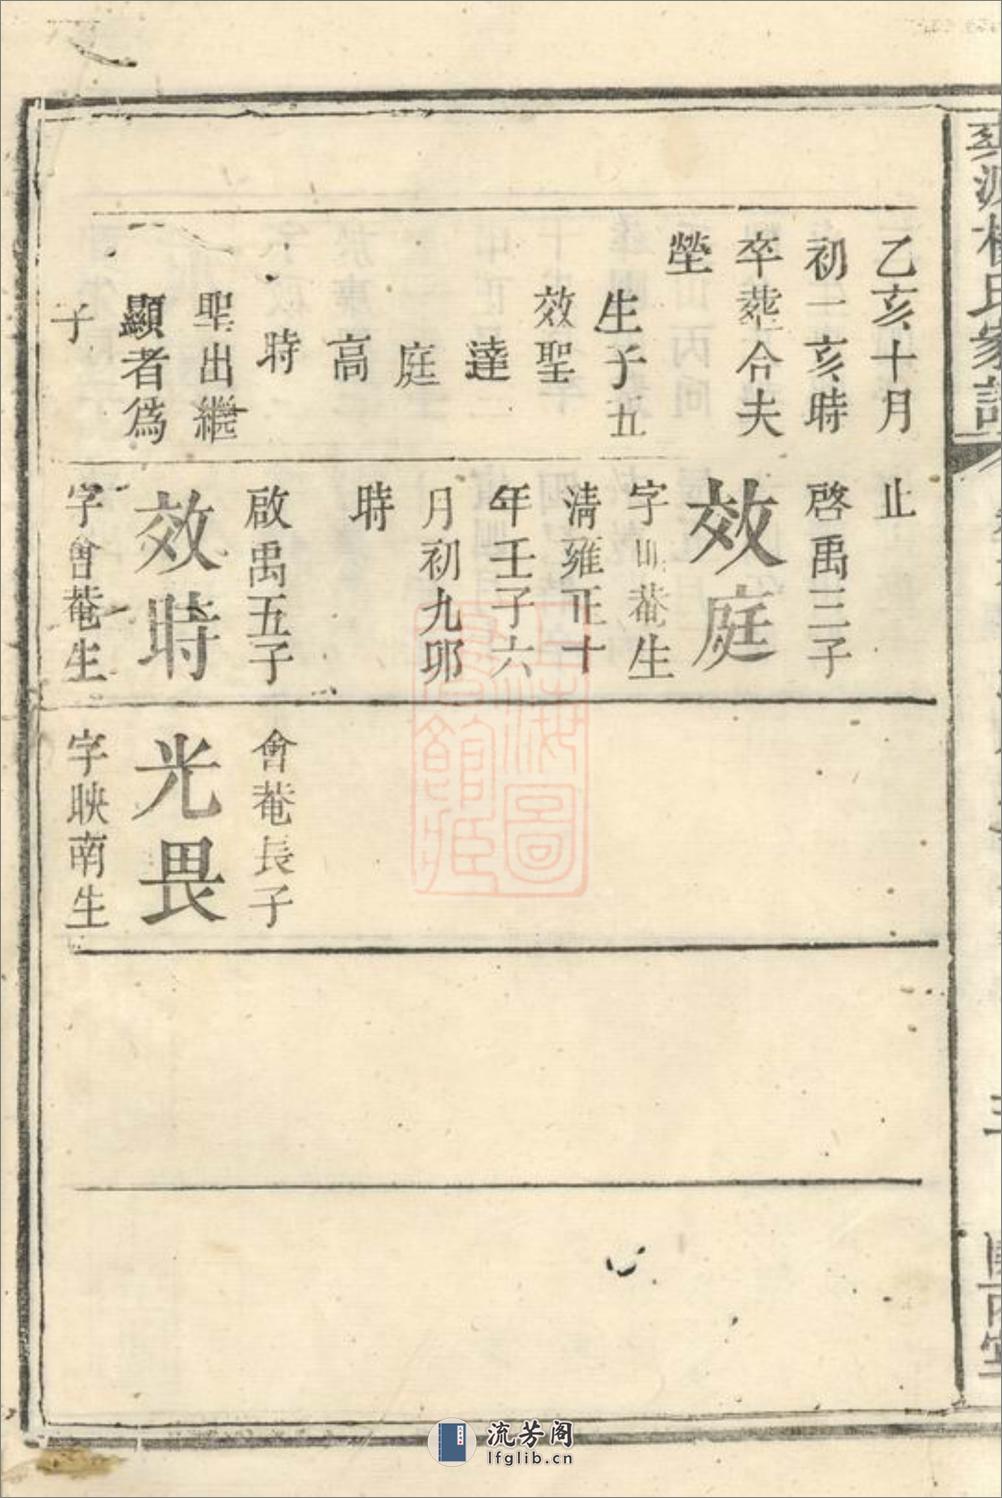 源楊氏家譜
乙亥十月
初一亥時
卒葬合夫
塋
生子五
效聖
達
庭
高
時
聖出繼
顯者為
子
止
啓禹三子
效庭
字山菴生
清雍正十
年壬子六
月初九卯
時
啟禹五子
效時
字會菴生
會菴長子
光畏
字映南生
上海圖
書館藏
流芳阁
lfglib.cn